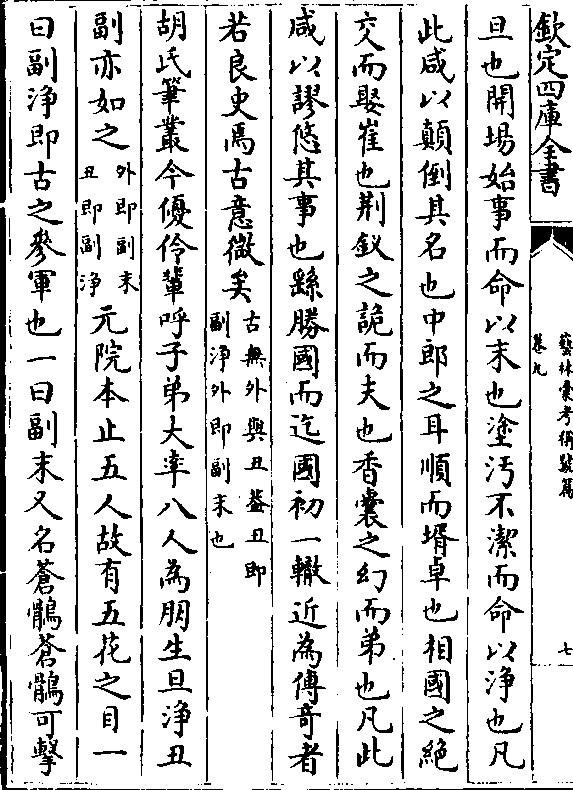 欽定四庫全書
藝林彙考稱號篇
卷九
七
旦也開場始事而命以末也塗汚不潔而命以浄也凡
此咸以顛倒其名也中郎之耳順而壻卓也相國之絶
交而娶崔也荆釵之詭而夫也香囊之幻而弟也凡此
咸以謬悠其事也繇勝國而迄國初一轍近為傳奇者
若良史焉古意微矣
古無外與丑蓋丑即
副浄外即副末也
胡氏筆叢今優伶輩呼子弟大率八人為朋生旦浄丑
副亦如之
外即副末
丑即副浄
元院本止五人故有五花之目一
曰副浄即古之參軍也一曰副末又名蒼鶻蒼鶻可擊